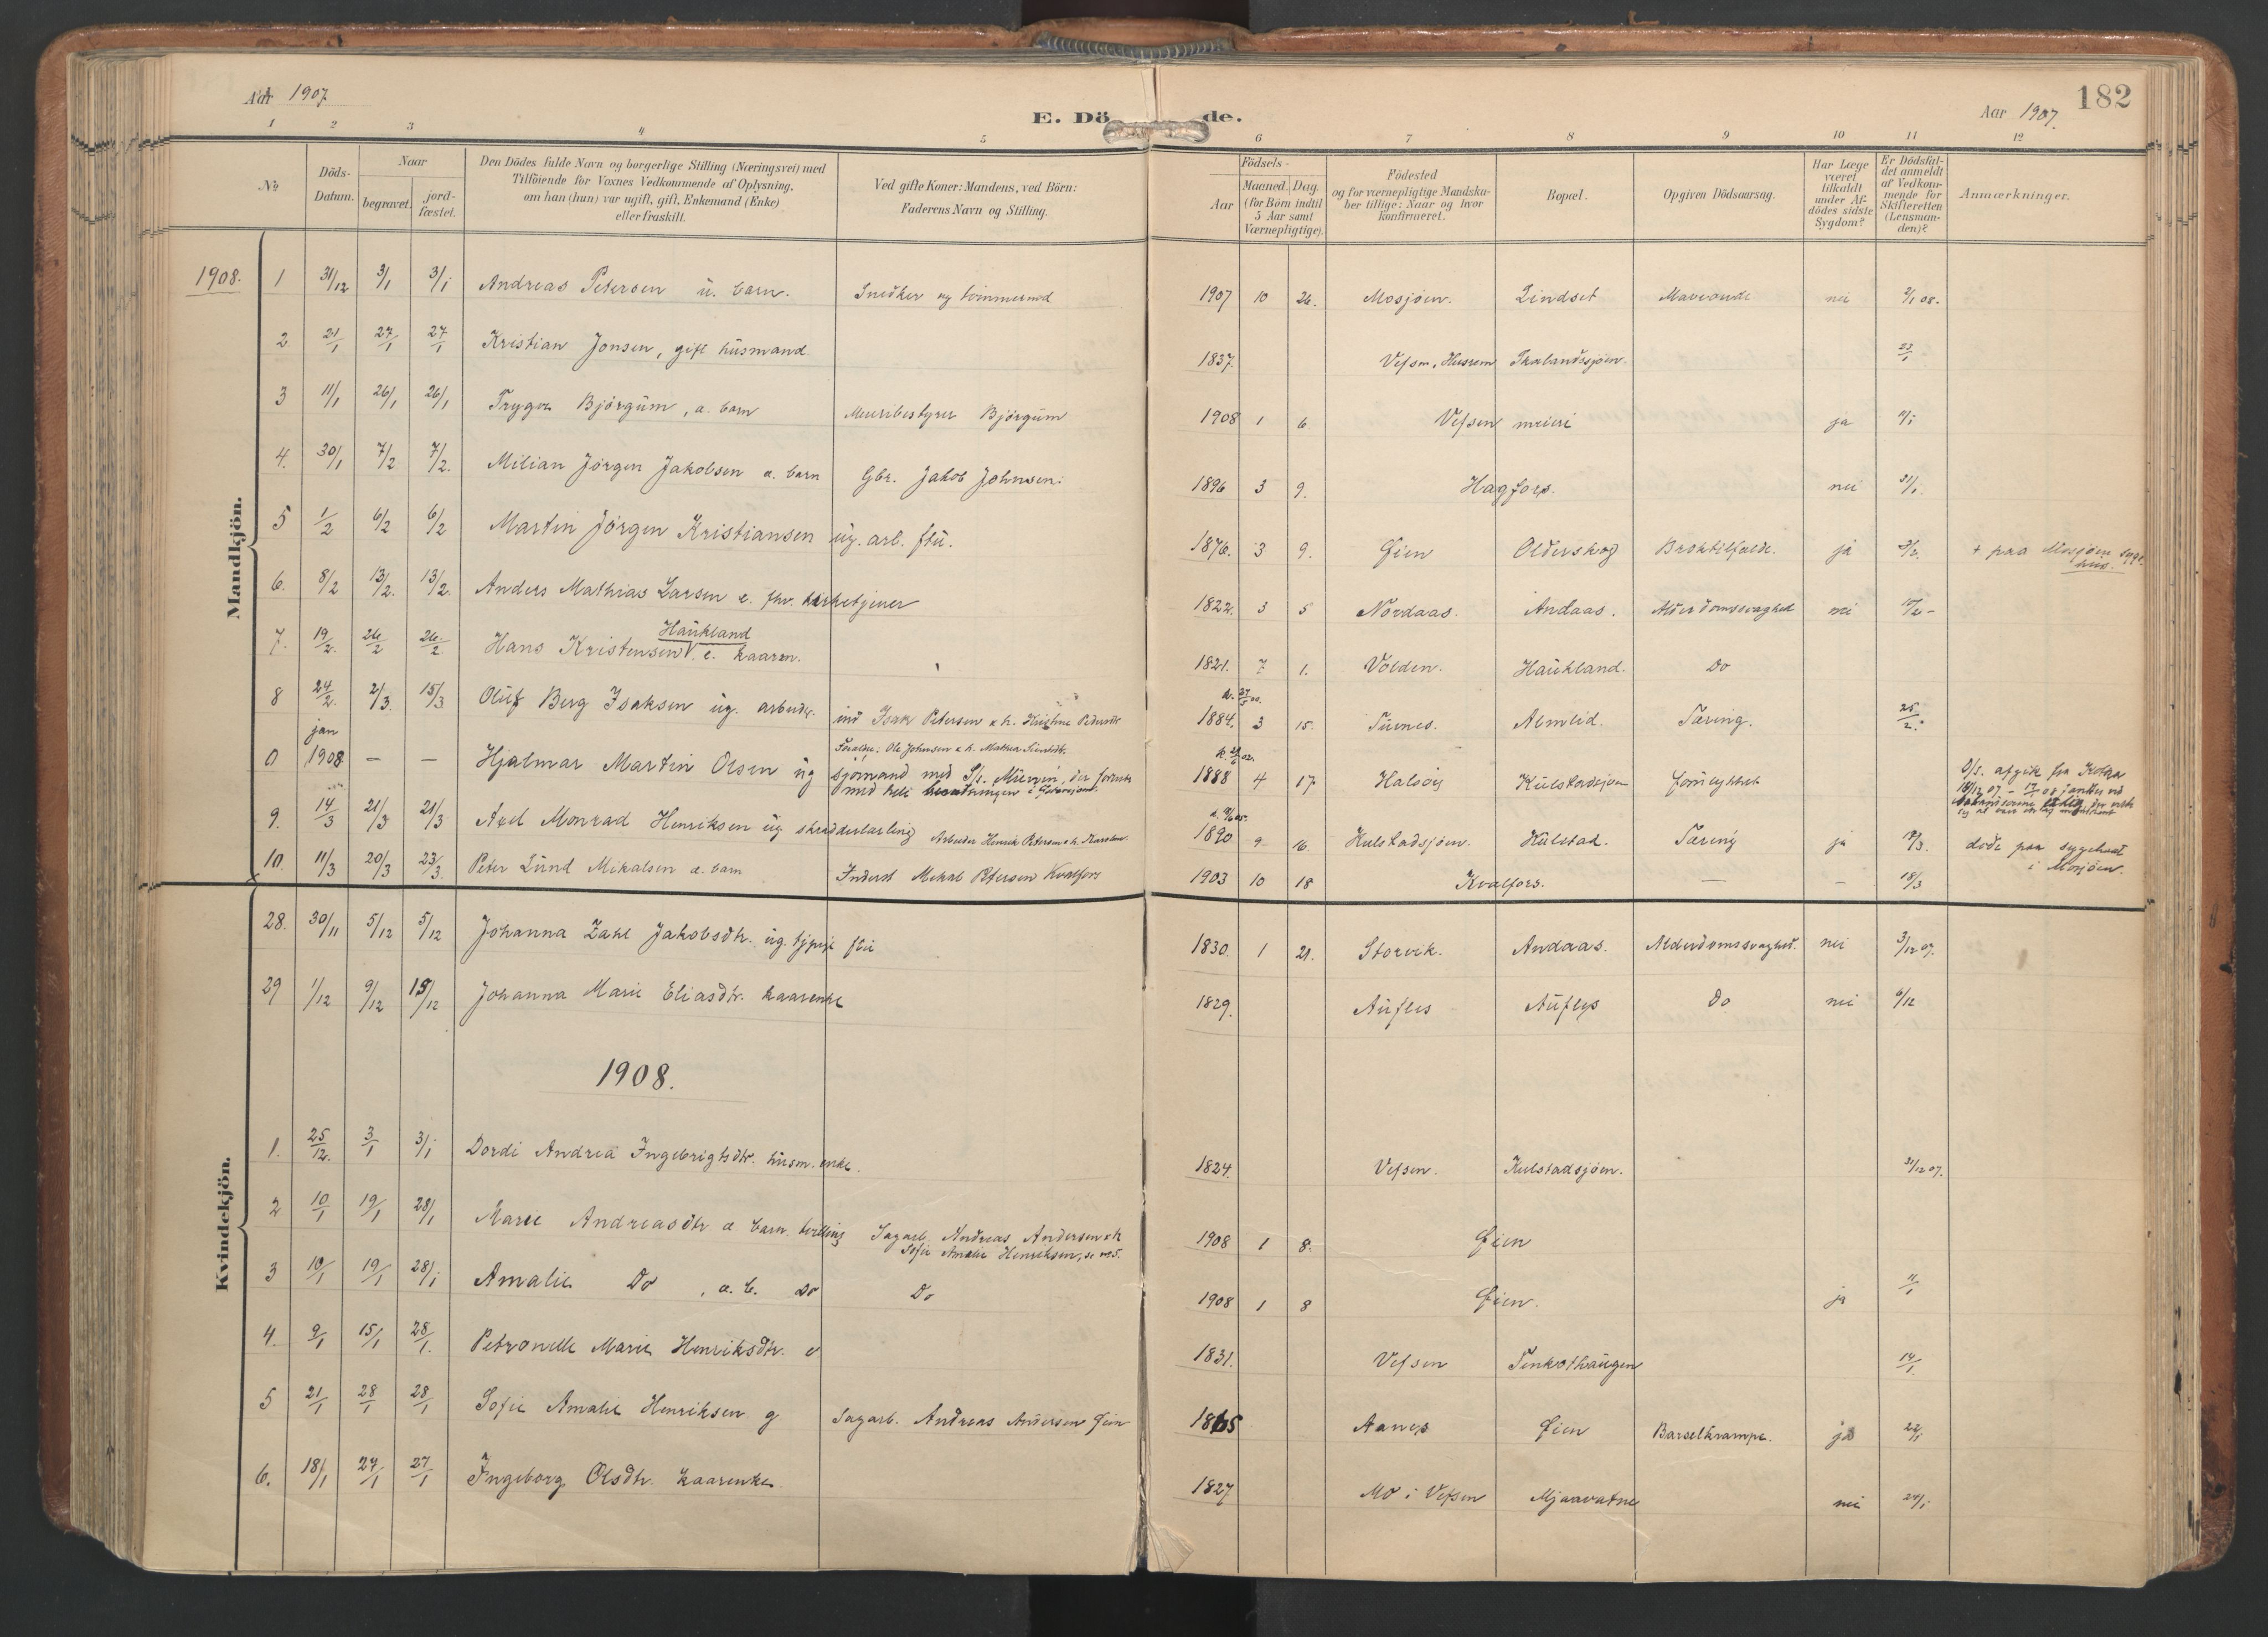 Aar 1907
E. Dö de.
Aar 1907.
182
1 2 3 4 5 6 7 8 9 10 11 12
No.
Döds-Datum.
Naar
begravet.
jord-fæstet.
Den Dödes fulde Navn og borgerlige Stilling (Næringsvei) med
Tilföiende for Voxnes Vedkommende af Oplysning,
om han (hun) var ugift, gift, Enkemand (Enke)
eller fraskilt.
Ved gifte Koner: Mandens, ved Börn:
Faderens Navn og Stilling.
Födsels-
Aar
Maaned. Dag.
(for Börn indtil
5 Aar samt
Værnepligtige).
Födested
og for værnepligtige Mandska-
ber tillige: Naar og hvor
konfirmeret.
Bopæl.
Opgiven Dödsaarsag.
Har Læge
været
tilkaldt
under Af-
dödes sidste
Sygdom?
Er Dödsfal-
det anmeldt
af Vedkom-
mende for
Skifteretten
(Lensman-
den)?
Anmærkninger.
Mandkjön.
1908. 1 31/12 3/1 3/1 Andreas Petersen u. barn. Snedker og tömmermd 1907 10 26. Mosjöen. Lindset nei 2/1 08.
2 21/1 27/1 27/1 Kristian Jonsen, gift husmand 1837. Vefsn, Husrem 23/1
3 11/1 26/1 26/1 Trygve Björgum, a. barn Meieribestyrer Björgum 1908 1 6 Vefsen meieri ja 11/1
4. 30/1 7/2 7/2. Milian Jörgen Jakobsen a. barn Gbr. Jakob Johnsen. 1896 3 9. Hagfors. nei 31/1
5 1/2 6/2 6/2 Martin Jörgen Kristiansen ug. arb. 1876. 3 9. Öien Olderskog Broktilfælde. ja 3/2. + paa Mosjöen syge-
hus.
6. 8/2 13/2. 13/2. Anders Mathias Larsen e. fhv. kirketjener 1822. 3 5 Nordaas. Andaas. Alderdomssvaghed nei
7. 19/2. 26/2 26/2 Hans Kristensen Haukland e. kaarm. 1821. 7 1. Volden. Haukland. Do
8 24/2. 2/3. 15/3 Oluf Berg Isaksen ug. arbeider. ind Isak Petersen & h. Kristine Pedersdtr 1884. 3 15. Turnes. Almlid. Tæring. 25/2.
0 jan 1908 — — Hjalmar Martin Olsen ug sjömand med S/s. Munin, der forsvandt
Forældre: Ole Johnsen & h.
med hele besætningen i 1888 4 17. Halsöy Kulstadsjöen forulykket
9. 14/3 21/3 21/3 Axel Monrad Henriksen ug skrædderlærling Arbeider Henrik Petersen & h. 1890 9 16 Kulstadsjöen. Kulstad. Tæring ja 17/3. döde paa sygehuset
i Mosjöen.
10. 11/3 20/3 23/3. Peter Lund Mikalsen a. barn Inderst Mikal Petersen Kvalfors 1903 10 18 Kvalfors. — — 18/3
Kvindekjön.
28. 30/11 5/12 5/12 Johanna Zahl Jakobsdtr. ug. tjpige 1830. 1 21. Storvik. Andaas. Alderdomssvaghed. nei 3/12 07.
29 1/12 9/12 15/12 Johanna Marie Eliasdtr. kaarenke 1829. Aufles Aufles Do nei 6/12
1908.
1. 25/12. 3/1 3/1 Dordi Andrea Ingebrigtsdtr. husm. enke. 1824. Vefsen. Kulstadsjöen. 31/12 07.
2 10/1 19/1 28/1 Marie Andreasdtr a. barn tvilling Sagarb. Andreas Andersen & h
Sofie Amalie Henriksen, se no 5. 1908 1 8. Öien
3 10/1 19/1 28/1 Amalie Do, a. b. Do Do 1908 1 8 Öien. ja 11/1
4. 9/1 15/1 28/1. Petronelle Marie Henriksdtr. e 1831. Vefsen 14/1.
5 21/1 28/1 28/1 Sofie Amalie Henriksen g Sagarb. Andreas Andersen Öien 1865 Aanes Öien Barselkrampe. ja 22/1
6. 18/1 27/1 27/1 Ingeborg Olsdtr. kaarenke 1827 Mo i Vefsen Mjaavatne nei 24/1